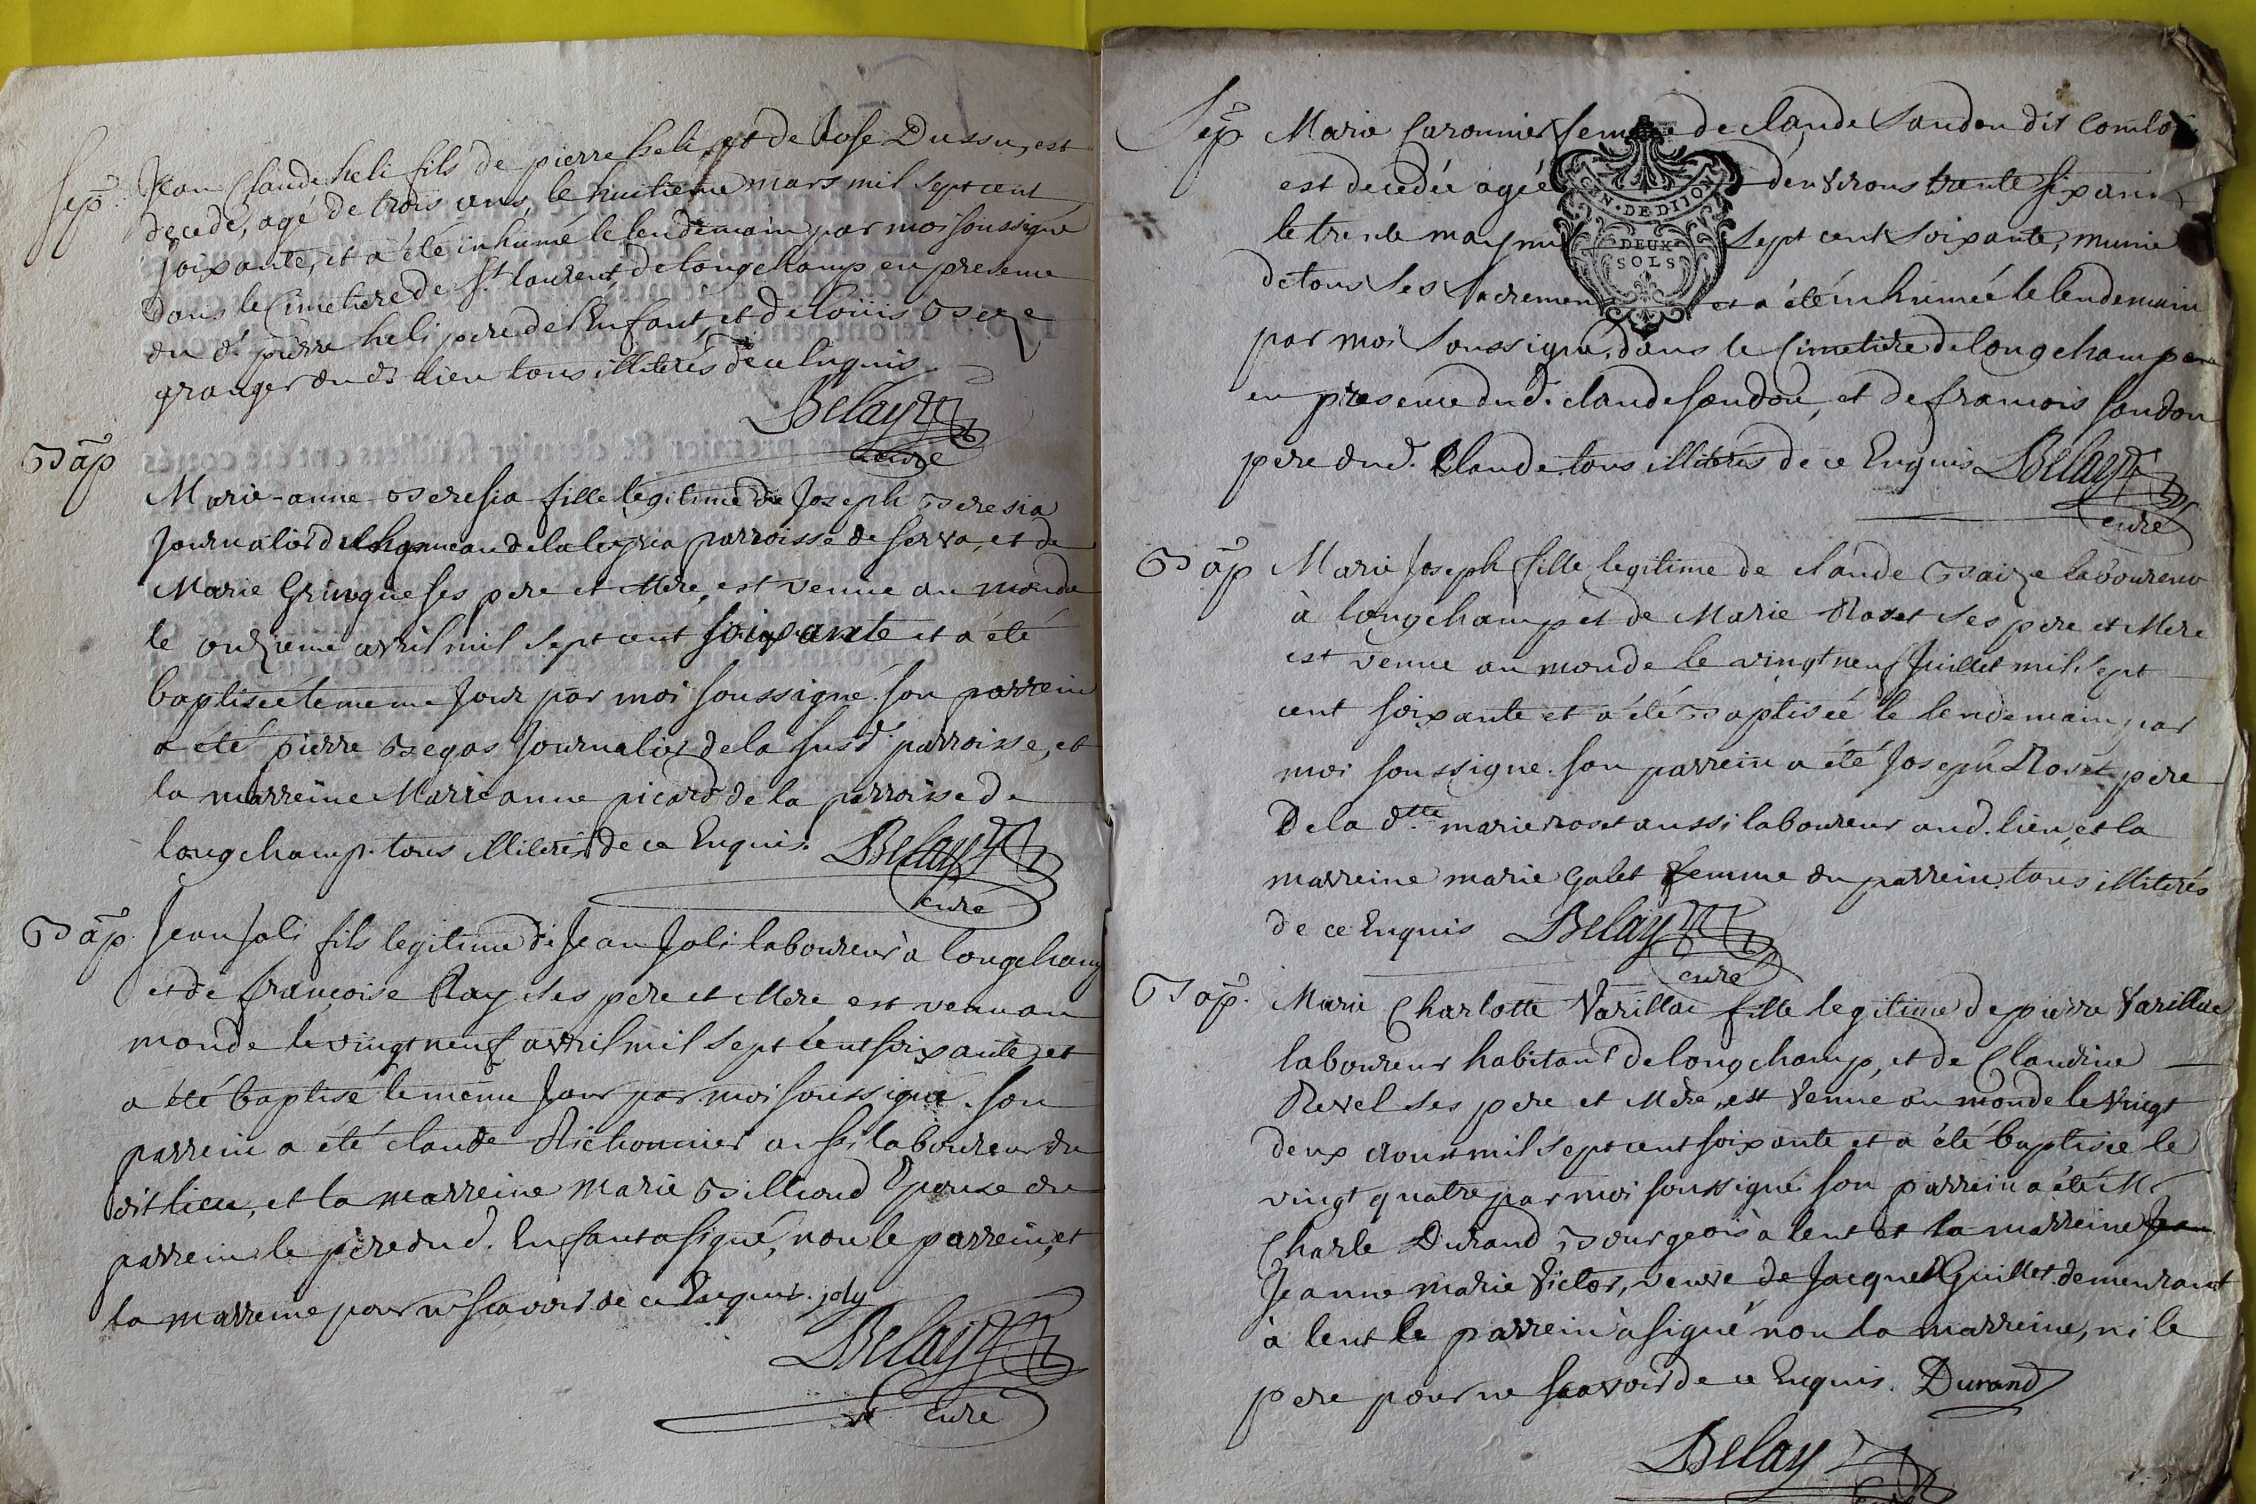 Sep. Jean Claude heli fils de pierre heli, et de Rose Dussu, est
decedé, agé de trois ans, le huitieme mars mil sept cent
soixante, et a été inhumé le lendemain par moi soussigné
dans le Cimetiere de St. laurent, de longchamp, en presence
du d. pierre heli pere de l'Enfant, et de loüis
granger du dt lieu tous illiterés de ce Enquis.
Belay
curé
Bap Marie-anne Beresia fille legitime de Joseph Beresia
journalier du hameau de la parroisse de Serva, et de
Marie Gringue ses pere et Mere, est venue au monde
le onzieme avril mil sept cent soixante et a été
baptisée le meme jour par moi soussigné. son parrein
a été pierre Begas Journalier de la susd. parroisse, et
la marreine Marie anne picard de la parroisse de
longchamp. tous illiterés de ce Enquis. Belay
curé
Bap. Jean Joli fils legitime de Jean Joli laboureur à longchamp
et de françoise Ray ses pere et Mere est venu au
monde le vingt neuf avril mil sept cent soixante, et
a été baptisé le meme jour par moi soussigné. son
parrein a été claude Richonnier aussi laboureur du
dit lieu, et la marreine marie Billioud Epouse du
parrein le pere du d. Enfant a signé, non le parrein, et
la marreine pour ne scavoir de ce Enquis. joly
Belay
curé
Sep Marie Caronnier femme de claude Sandon dit Comtois
est decedée agée d'environs trente six ans
le trente may mil sept cent soixante, munie
de tous ses sacremens et a été inhumée le lendemain
par moi soussigné, dans le Cimetiere de longchamp
en presence du d. claude Sandon, et de francois Sandon
pere du d. Claude tous illiterés de ce Enquis Belay
curé
GEN. DE DIJON
DEUX
SOLS
Bap Marie Joseph fille legitime de claude Baize laboureur
à longchamp et de Marie Rovet ses pere et Mere
est venue au monde le vingt neuf Juillet mil sept
cent soixante et a été Baptisée le lendemain par
moi soussigné. son parrein a été Joseph Rovet pere
De la dtte marie rovet aussi laboureur aud. lieu, et la
marreine marie Galet femme du parrein. tous illiterés
de ce Enquis Belay
curé
Bap. Marie Charlotte Varillac fille legitime de pierre Varillac
laboureur habitant de longchamp, et de Claudine
Revel ses pere et Mere, est venue au monde le vingt
deux aoust mil sept cent soixante et a été baptisée le
vingt quatre par moi soussigné son parrein a été Mr
Charle Durand Bourgeois à lent et la marreine Jean
Jeanne marie Victor, veuve de Jacque Guillet demeurant
à lent le parrein a signé non la marreine, ni le
pere pour ne scavoir de ce Enquis. Durand
Belay
curé